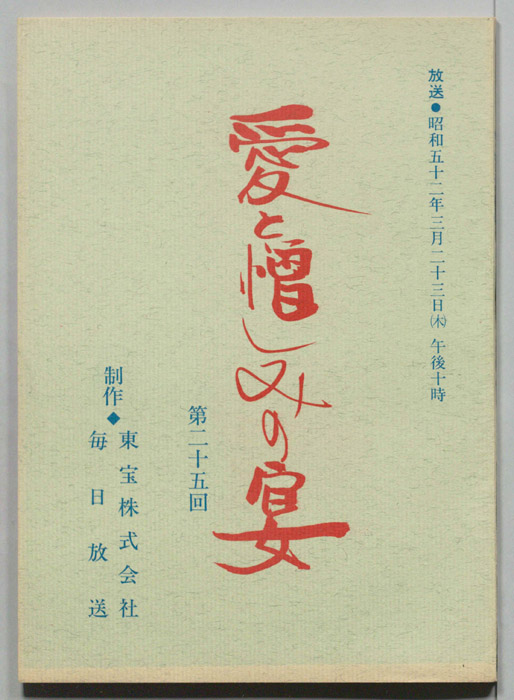 放送●昭和五十二年三月二十三日㈭ 午後十時
愛と憎しみの宴
第二十五回
制作◆
東宝株式会社
毎日放送